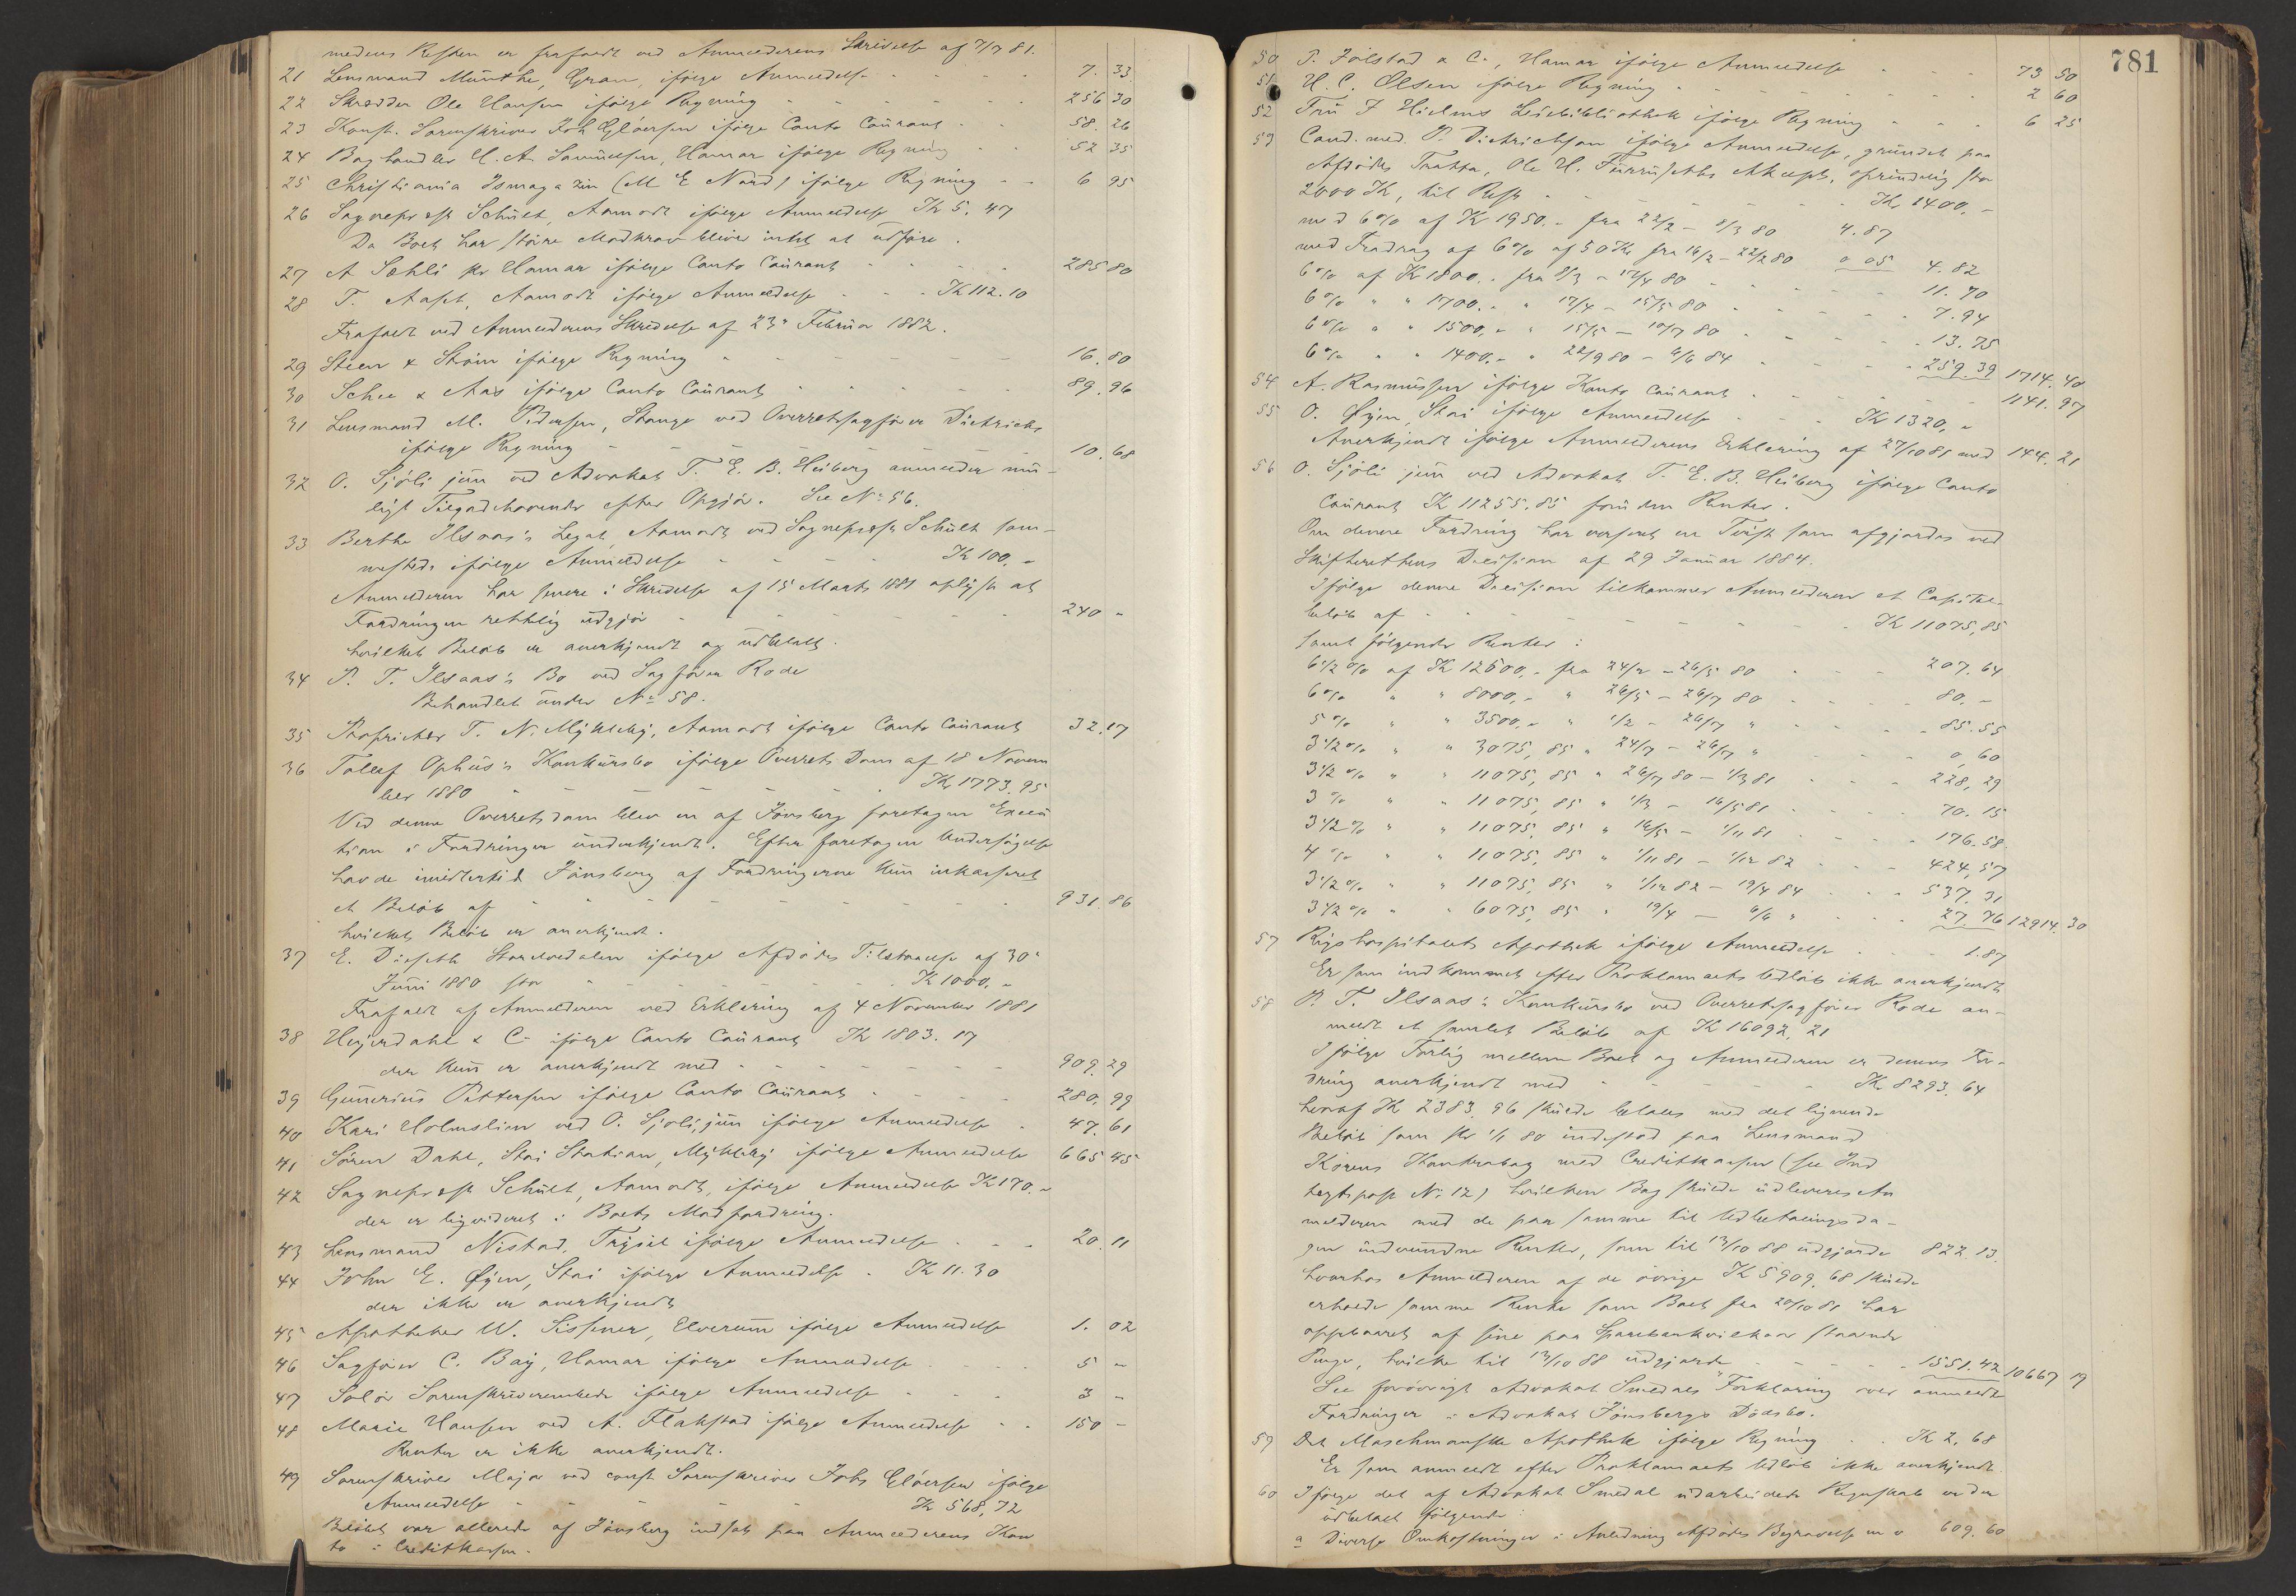 medens Resten er frafaldt ved Anmelderens Skrivelse af 7/7 81.
21 Lensmand Münthe, Gran, ifølge Anmeldelse 7. 33
22 Skrædder Ole Hansen ifölge Regning 256 30
23 Konst. Sorenskriver Joh Gløersen ifölge Conto Courant 58. 26
24 Boghandler H. A. Samuelsen, Hamar ifölge Regning 52 35
25 Christiania Ismagazin (M E Nord) ifölge Regning 6 95
26 Sognepræst Schult, Aamodt ifölge Anmeldelse Kr 5. 47
Da Boet har större Modkrav bliver intet at udföre.
27 A Sæhli pr Hamar ifölge Conto Courant 285 80
28 T. Aaset, Aamodt ifölge Anmeldelse Kr 112. 10
Frafaldt ved Anmelderens Skrivelse af 23de Februar 1882.
29 Steen & Ström ifölge Regning 16. 80
30 Schee & Aas ifölge Conto Courant 89. 96
31 Lensmand M. Pedersen, Stange ved Overretssagförer Dietrichs
ifölge Regning 10. 68
32 O. Sjöli jun ved Advokat T. E. B. Heiberg anmelder mu-
ligt Tilgodehavende efter Opgjör. See No 56.
33 Berthe Ilsaas's Legat, Aamodt ved Sognepræst Schult sam-
mesteds ifölge Anmeldelse Kr 100. -
Anmelderen har senere i Skrivelse af 15 Marts 1881 oplyst at
Fordringen rettelig udgjör 240 -
hvilket Belöb er anerkjendt og udbetalt.
34 P. T. Ilsaas's Bo ved Sagförer Rode
Behandlet under No 58.
35 T. N. Mykleby, Aamodt ifölge Conto Courant 32. 17
36 Tollef Ophus's Konkursbo ifölge Overrets Dom af 18 Novem
ber 1880 Kr 1773. 95
Ved denne Overretsdom blev en af Jönsberg foretagen Execu
tion i Fordringer underkjendt. Efter foretagen Undersögelse
havde imidlertid Jönsberg af Fordringerne kun inkasseret
et Belöb af 931. 86
hvilket Belöb er anerkjendt.
37 E. Storelvedalen ifölge Afdödes Tilstaaelse af 30te
Juni 1880 stor Kr 1000. -
Frafaldt af Anmelderen ved Erklæring af 4 November 1881
38 Heyerdahl & C. ifölge Conto Courant Kr 1803. 17
der kun er anerkjendt med 909. 29
39 Gunerius Pettersen ifölge Conto Courant 280. 99
40 Kari Holmslien ved O. Sjöli jun ifölge Anmeldelse 47. 61
41 Sören Dahl, Stai Station, Myklebÿ ifölge Anmeldelse 665 45
42 Sognepræst Schult, Aamodt, ifölge Anmeldelse Kr 170. -
der er ligvideret i Boets Modfordring.
43 Lensmand Nistad, Trysil ifölge Anmeldelse 20. 11
44 John E. Öÿen, Stai ifölge Anmeldelse Kr 11. 30
der ikke er anerkjendt
45 Apotheker W. Sissener, Elverum ifölge Anmeldelse 1. 02
46 Sagförer C. Baÿ, Hamar ifölge Anmeldelse 5 -
47 Solör Sorenskriverembede ifölge Anmeldelse 3 -
48 Marie Hansen ved A. Flakstad ifölge Anmeldelse 150 -
Renter er ikke anerkjendt.
49 Sorenskriver Major ved const Sorenskriver Johs Glöersen ifölge
Anmeldelse Kr 568, 72
Belöbet var allerede af Jönsberg indsat paa Anmelderens Kon
to i Creditkassen.
781
50 P. Jölstad & C., Hamar ifölge Anmeldelse 73 50
51 H. C. Olsen ifölge Regning 2 60
52 Fru J Hielms Leiebibliothek ifölge Regning 6 25
53 Cand. med. P. Dietrichson ifölge Anmeldelse, grundet paa
Afdödes Tratta, Ole H. Furusets Akcept, oprindelig stor
2000 Kr, til Rest Kr 1400. -
med 6% af Kr 1950. - fra 22/2 - 8/3 80 4. 87
med Fradrag af 6% af 50 Kr fra 16/2 - 22/2 80 0 05 4. 82
6% af Kr 1800. - fra 8/3 - 17/4 80 11. 70
6% " " 1700. - " 17/4 - 15/5 80 7. 94
6% " " 1500, - " 15/5 - 10/7 80 13. 75
6% " " 1400. - " 22/9 80 - 6/6 84 259. 39 1714. 40
54 A. Rasmussen ifölge Konto Courant 1141. 97
55 O. Öÿen, Stai ifölge Anmeldelse Kr 1320, -
Anerkjendt ifölge Anmelderens Erklæring af 27/10 81 med 144. 21
56 O. Sjöli jun ved Advokat T. E. B. Heiberg ifölge Conto
Courant Kr 11255. 85 foruden Renter.
Om denne Fordring har verseret en Tvist som afgjordes ved
Skifterettens Decision af 29 Januar 1884.
Ifölge denne Decision tilkommer Anmelderen et Capital-
belöb af Kr 11075, 85
samt fölgende Renter :
6 1/2 % af Kr 12600, - fra 24/2 - 26/5 80 207. 64
6% " " 8000, - " 26/5 - 26/7 80 80, -
5% " " 3500, - " 1/2 - 26/7 " 85. 55
3 1/2 % " " 3075, 85 " 24/7 - 26/7 " 0, 60
3 1/2 % " " 11075, 85 " 26/7 80 - 1/3 81 228, 29
3% " " 11075, 85 " 1/3 - 16/5 81 70. 15
3 1/2 % " " 11075, 85 " 16/5 - 1/11 81 176. 58
4% " " 11075, 85 " 1/11 81 - 1/12 82 424, 57
3 1/2 % " " 11075, 85 " 1/12 82 - 19/4 84 537. 31
3 1/2 % " " 6075, 85 " 19/4 - 6/6 " 27. 76 12914. 30
57 Rigshospitalets Apothek ifölge Anmeldelse 1. 87
Er som indkommet efter Proklamaets Udlöb ikke anerkjendt
58 P. T. Ilsaas's Konkursbo ved Overretssagförer Rode an-
meldt et samlet Belöb af Kr 16092, 21
Ifölge Forlig mellem Boet og Anmelderen er dennes For-
dring anerkjendt med Kr 8293. 64
heraf Kr 2383, 96 skulde betales med det lignende
Belöb som pr 1/1 80 indestod paa Lensmand
Kiærens Kontrabog med Creditkassen (see Ind
tægtspost No 12) hvilken Bog skulde udleveres An
melderen med de paa samme til Udbetalingsda-
gen indvundne Renter, som til 13/10 88 udgjorde 822. 13.
hvorhos Anmelderen af de övrige Kr 5909, 68 skulde
erholde samme Rente som Boet fra 20/10 81 har
oppebaaret af sine paa Sparebankvilkaar staaende
Penge, hvilke til 13/10 88 udgjorde 1551. 42 10667 19
See forövrigt Advokat Smedals Forklaring over anmeldte
Fordringer i Advokat Jönsbergs Dödsbo.
59 Det Maschmannske Apothek ifölge Regning Kr 2, 68
Er som anmeldt efter Proklamaets Udlöb ikke anerkjendt.
60 Ifölge det af Advokat Smedal udarbeidede Regnskab er der
udbetalt fölgende
a Diverse Omkostninger i Anledning Afdödes Begravelse m v 609. 60